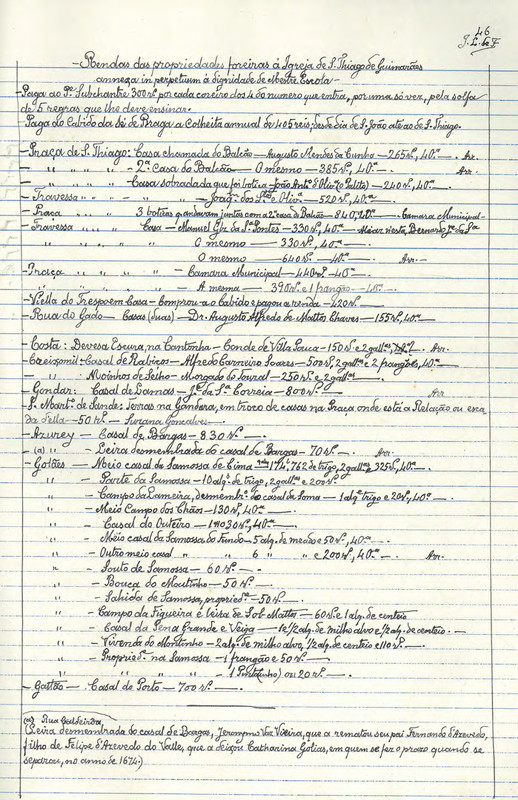 46
J. L. de F.
- Rendas das propriedades foreiras à Igreja de S. Thiago de Guimarães
annexa in perpetuum à dignidade de Mestre Escola -
- Paga ao Pe. Subchantre 300 rs. por cada coreiro dos 4 do numero que entra, por uma só vez, pela solfa
de 5 regras que lhe deve ensinar.
- Paga do Cabido da Sé de Braga a Colheita annual de 405 reis, desde dia de S. João até ao de S. Thiago.
- Praça de S. Thiago: Casa chamada do Balcão - Augusto Mendes da Cunha - 265 rs., 40.na -. Arr.
- " " " - 2.ª Casa do Balcão - O mesmo - 385 rs., 40.na -. Arr.
- " " " - Casa sobradada que foi botica - João Ant.º d'Oliv.ª (o Pulito) - 240 rs., 40.na -.
- Travessa " " " - Joaq. dos Stos e Oliv.ª - 520 rs., 40.na -.
- Praça " " " 3 boticas q. andavam juntas com a 2.ª casa do Balcão - 840, 40.na - Camara Municipal -
- Travessa " " " Casa - Manuel Glz da S.ª Pontes - 330 rs., 40.na -
O mesmo - 330 rs., 40.na -
O mesmo - 640 rs. - 40.na -. Arr. -
- Praça " " " - Camara Municipal - 440 rs. - 40.na -
A mesma - 390 rs. e 1 frangão - 40.na -
- Viella do Trespom Casa - Comprou-a o Cabido e pagou a renda - 420 rs.
- Rua do Gado - Casas (duas) - Dr. Augusto Alfredo de Mattos Chaves - 155 rs., 40.na
- Costa: Devesa Escura, na Cantonha - Conde de Villa Pouca - 150 rs. e 2 gall.as Arr.
- Creixomil: Casal de Rabiços - Alfredo Carneiro Soares - 500 rs., 2 gall.as e 2 frangões, 40.na
- " - Moinhos de Selho - Morgado do Toural - 250 rs. e 2 gall.as
- Gondar: Casal de Damas - J.e da S.ª Correia - 800 rs. Arr
- S. Mart.º de Sande: Terras na Gandara, em troco de casas na Praça onde está a Relação ou esca
da della - 50 rs. - Susana Gonçalves -
- Azurey - Casal de Bargas - 830 rs. -
- (a) " - Leira desmembrada do casal de Bargas - 70 rs. -. Arr. -
- Golães - Meio casal da Samossa de Cima 762 de trigo, 2 gall.as e 325 rs., 40.na
" - Parte da Samossa - 10 alq.es de trigo, 2 gall.as e 200 rs.
" - Campo da Lameira, desmembr.º do casal de Soma - 1 alq.e trigo e 20 rs., 40.na
" - Meio Campo dos Chãos - 130 rs., 40.na
" - Casal do Outeiro - 1$030 rs., 40.na -.
" - Meio casal da Samossa do Fundo - 5 alq. de meado e 50 rs., 40.na -.
" - Outro meio casal " " 6 " " e 200 rs., 40.na -. Arr.
" - Souto de Samossa - 60 rs. -
" - Bouça do Moutinho - 50 rs.
" - Sahida de Samossa, propried.e - 50 rs.
" - Campo da Figueira e leira de Sob-Matto - 60 rs. e 1 alq. de centeio
" - Casal da Pena Grande e Veiga - 1 e 1/2 alq. de milho alvo e 1/2 alq. de centeio -.
" - Vivenda do Montinho - 2 alq. de milho alvo, 1/2 alq. de centeio e 110 rs. -.
" - Propried.e na Samossa - 1 frangão e 50 rs. -.
" " " " - 1 Pinta(inho) ou 20 rs. -.
- Gatão - Casal do Porto - 700 rs. -.
(a) Rua
(Leira desmembrada do casal de Bargas, Jeronymo Vaz Vieira, que a rematou seu pai Fernando d'Azevedo,
filho de Felipe d'Azevedo do Valle, que a deixou Catharina Golias, em quem se fez o prazo quando se
separou, no anno de 1674.)